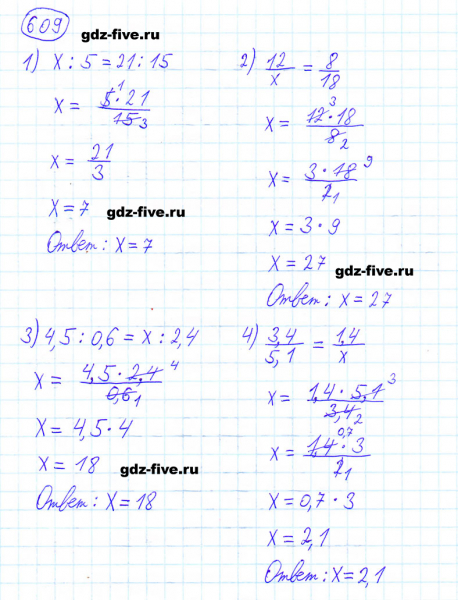 609
gdz-five.ru
1) x : 5 = 21 : 15
x = 5 1 · 21 / 15 3
x = 21 / 3
x = 7
gdz-five.ru
Ответ: x = 7
2) 12 / x = 8 / 18
x = 12 3 · 18 / 8 2
x = 3 · 18 9 / 2 1
x = 3 · 9
x = 27
gdz-five.ru
Ответ: x = 27
3) 4,5 : 0,6 = x : 2,4
x = 4,5 · 2,4 4 / 0,6 1
x = 4,5 · 4
x = 18
gdz-five.ru
Ответ: x = 18
4) 3,4 / 5,1 = 1,4 / x
x = 1,4 · 5,1 3 / 3,4 2
x = 1,4 0,7 · 3 / 2 1
x = 0,7 · 3
x = 2,1
Ответ: x = 2,1